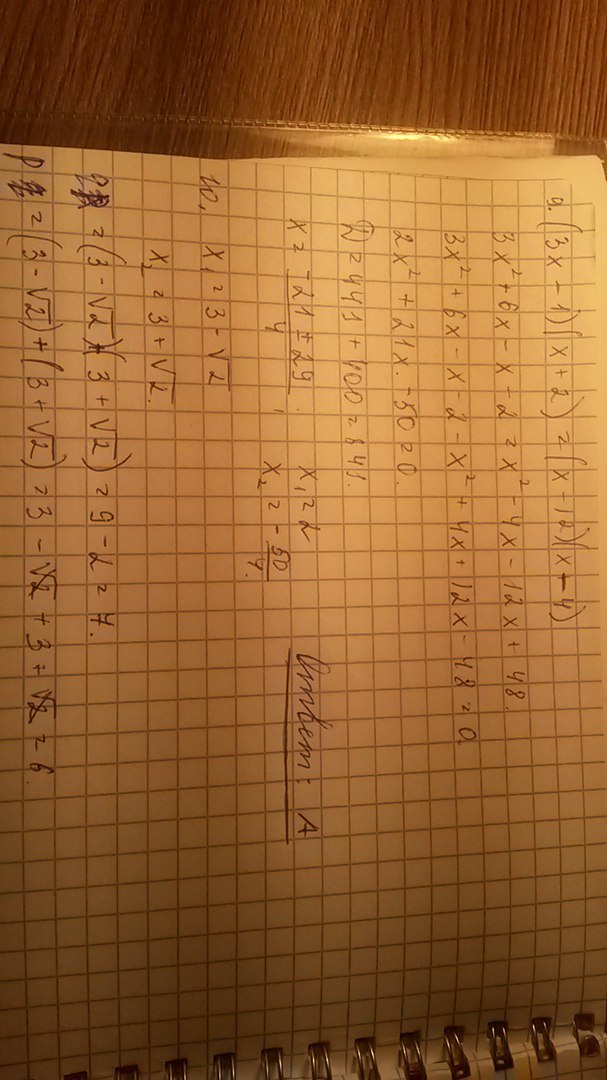 9. (3x - 1)(x + 2) = (x - 12)(x - 4)
3x² + 6x - x - 2 = x² - 4x - 12x + 48.
3x² + 6x - x - 2 - x² + 4x + 12x - 48 = 0.
2x² + 21x - 50 = 0.
D = 441 + 400 = 841.
x = (-21 ± 29)/4, x₁ = 2
x₂ = -50/4.
Ответ: А
10. x₁ = 3 - √2
x₂ = 3 + √2.
q = (3 - √2)(3 + √2) = 9 - 2 = 7.
p = (3 - √2) + (3 + √2) = 3 - √2 + 3 + √2 = 6.